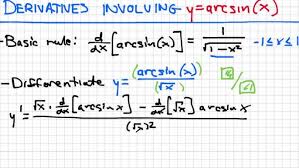 DERIVATIVES INVOLVING y=arcsin(x)
-Basic rule: d/dx [arcsin(x)] = 1/√(1-x²) -1≤x≤1
-Differentiate y = (arcsin(x))/(√x)
y' = (√x · d/dx [arcsin x] - d/dx [√x] arcsin x)/(√x)²